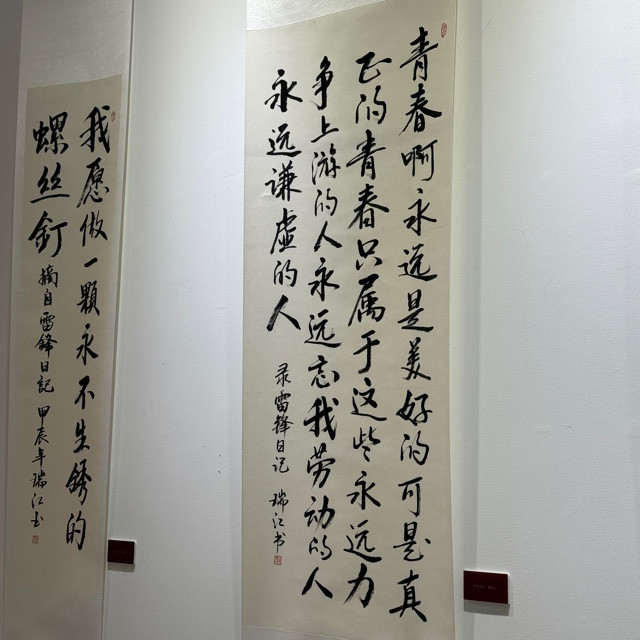 青春啊永远是美好的可是真
正的青春只属于这些永远力
争上游的人永远忘我劳动的人
永远谦虚的人
录雷锋日记 瑞江书
我愿做一颗永不生锈的
螺丝钉
摘自雷锋日記 甲辰年瑞江书